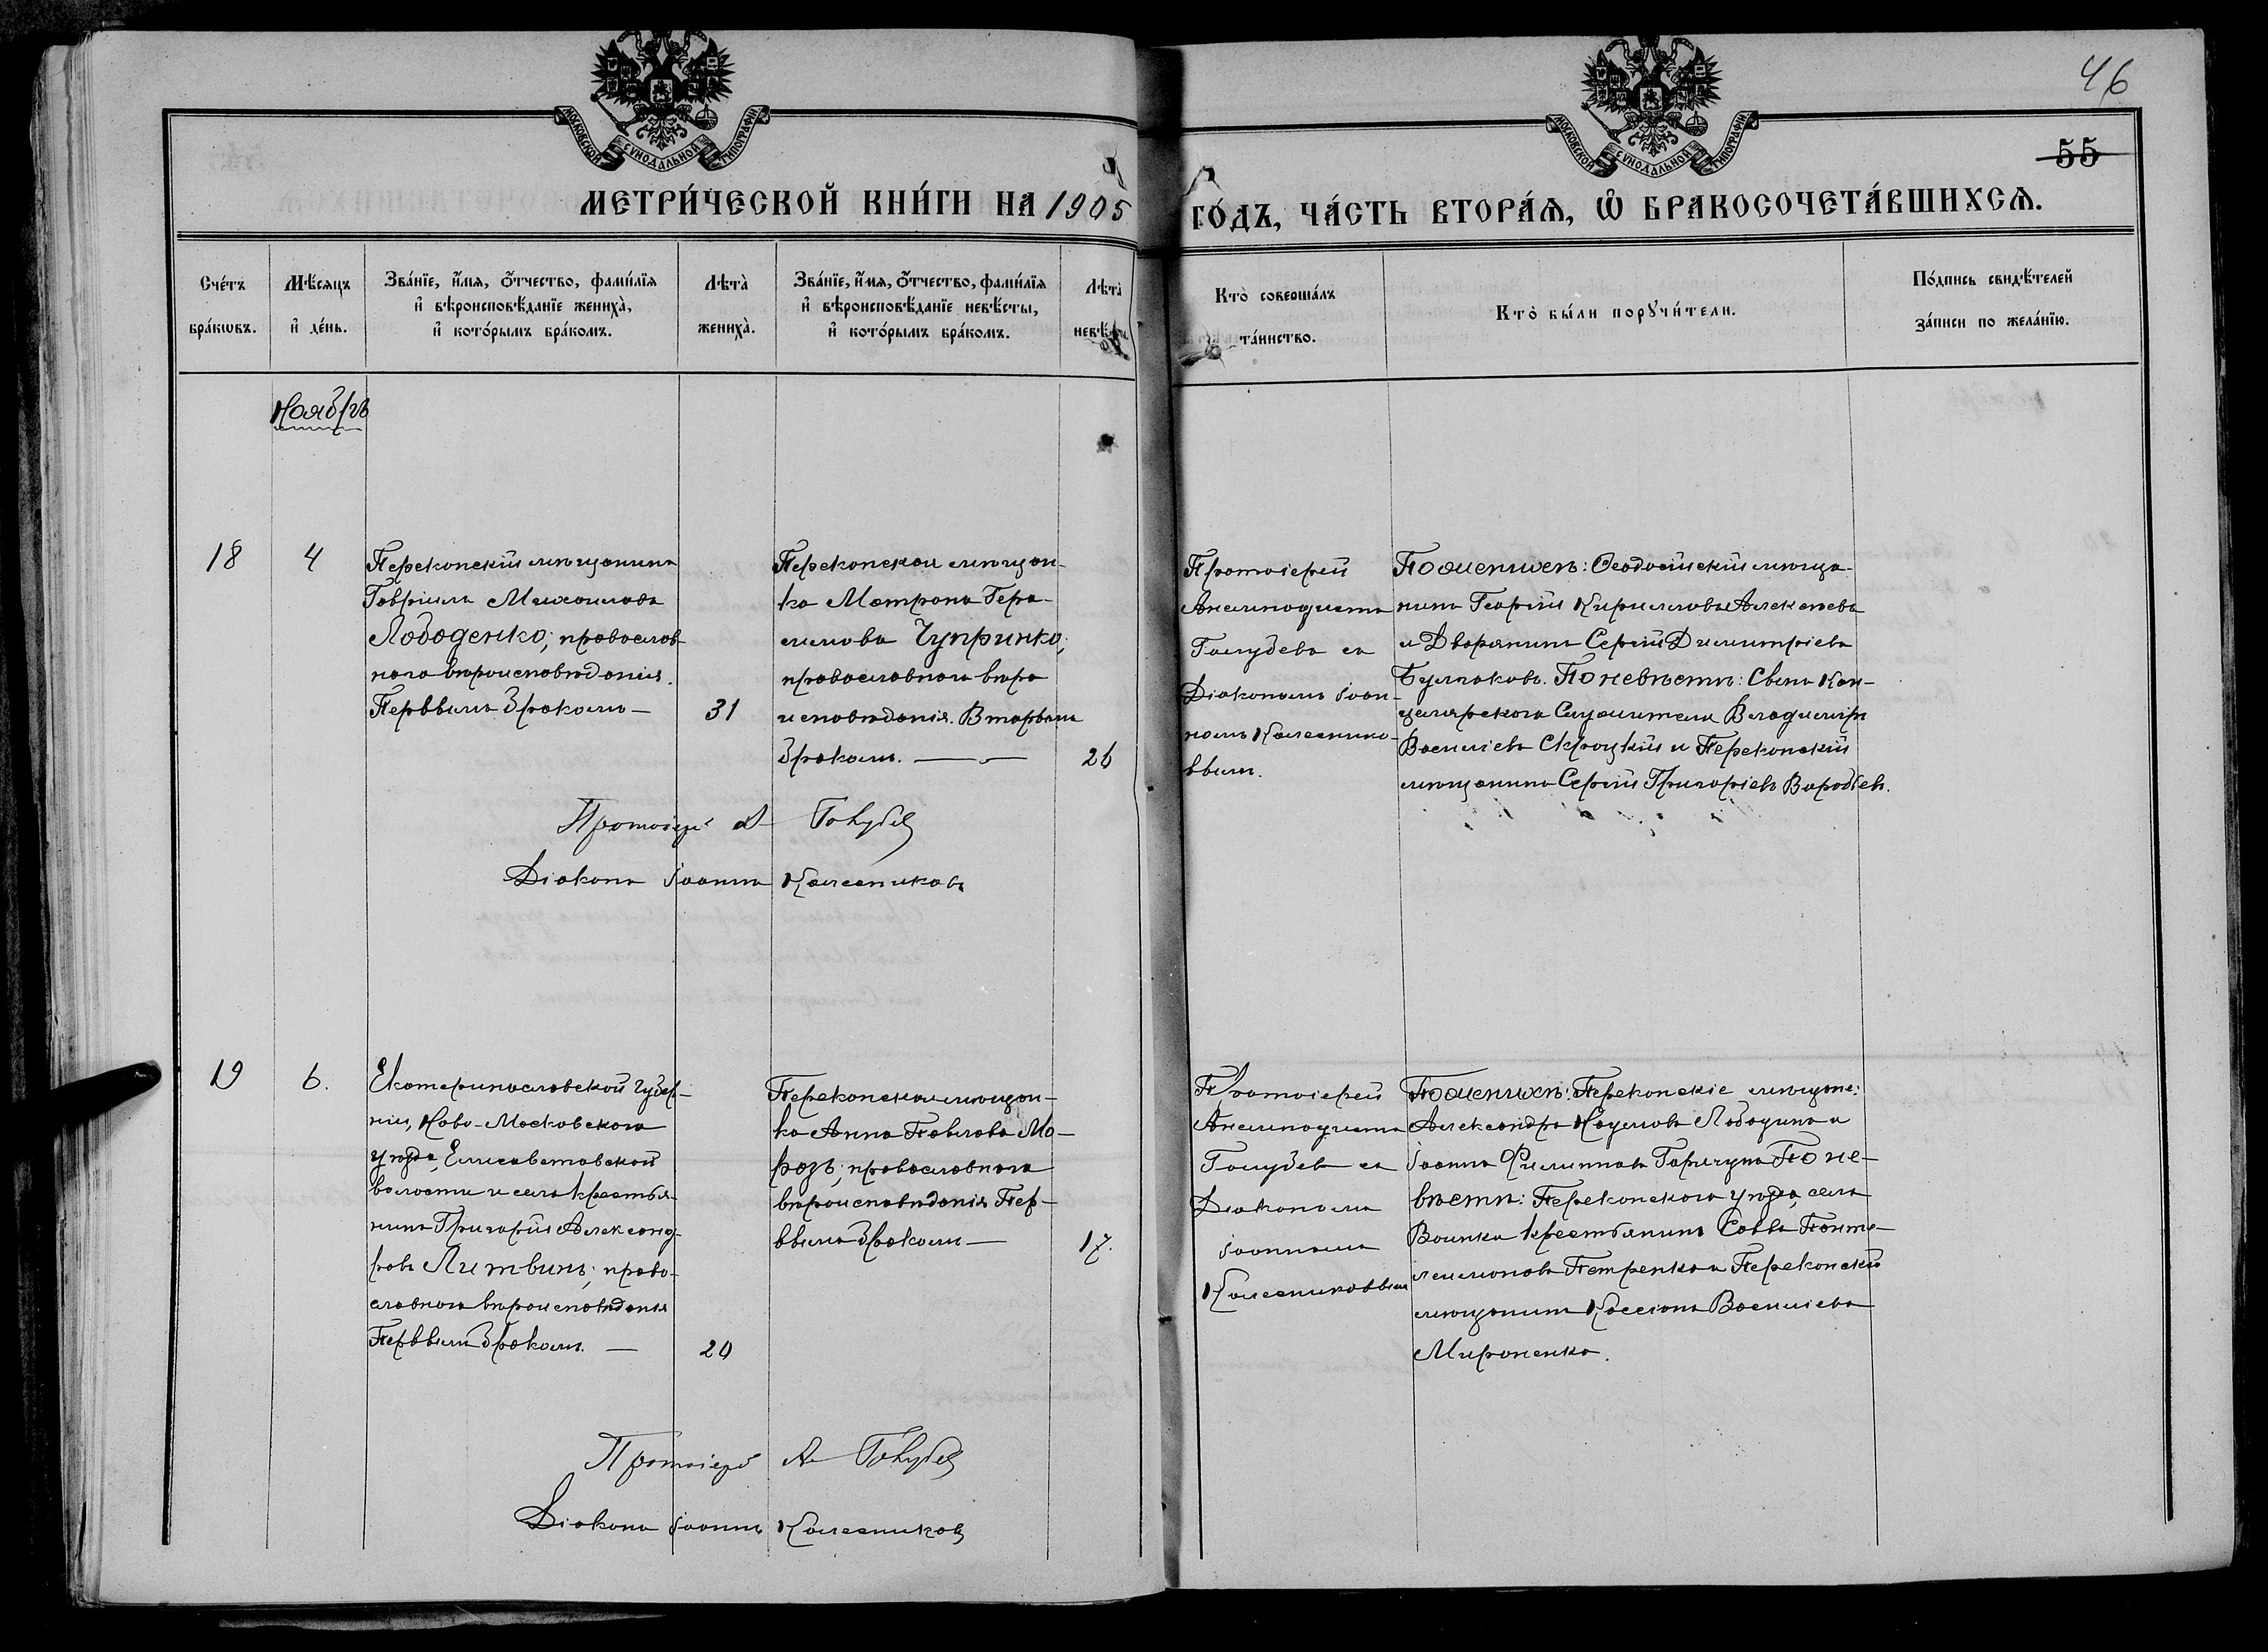 46
55
МОСКОВСКОЙ СѴНОДАЛЬНОЙ ТИПОГРАФІИ
МОСКОВСКОЙ СѴНОДАЛЬНОЙ ТИПОГРАФІИ
МЕТРИ́ЧЕСКОЙ КНИ́ГИ НА 1905
ГО́ДЪ, ЧА́СТЬ ВТОРА́Ѧ, Ѽ БРАКОСОЧЕТА́ВШИХСѦ.
Сче́тъ
бра́кѡвъ.
Мѣ́сяцъ
и҆ де́нь.
Зва́нїе, и҆́мя, ѻ҆́тчество, фами́лїя
и҆ вѣроисповѣ́данїе жениха̀,
и҆ кото́рымъ бра́комъ.
Лѣта̀
жениха̀.
Зва́нїе, и҆́мя, ѻ҆́тчество, фами́лїя
и҆ вѣроисповѣ́данїе невѣ́сты,
и҆ кото́рымъ бра́комъ.
Лѣта̀
невѣ́сты.
Кто̀ соверша́лъ
та́инство.
Кто̀ бы́ли порꙋчи́тели.
По́дпись свидѣ́телей
за́писи по жела́нїю.
Ноябрь
18
4
Перекопскій мѣщанинъ
Гавріилъ Михаиловъ
Лободенко; православ-
наго вѣроисповѣданія.
Первымъ бракомъ —
31
Перекопская мѣщан-
ка Матрона Гера-
симова Чупринко;
православнаго вѣро
исповѣданія. Вторымъ
бракомъ. —
26
Протоіерей
Анемподистъ
Голубевъ съ
Діакономъ Іоан-
номъ Колеснико-
вымъ.
По женихѣ: Ѳеодосійскій мѣща-
нинъ Георгій Кирилловъ Алексѣевъ
и Дворянинъ Сергій Димитріевъ
Булгаковъ. По невѣстѣ: Сынъ Кан-
целярскаго Служителя Владиміръ
Василіевъ Скроцкій и Перекопскій
мѣщанинъ Сергій Григоріевъ Воробьев.
Протоіерей А Голубев
Діаконъ Іоаннъ Колесниковъ
19
6.
Екатеринославской губер-
ніи, Ново-Московскаго
уѣзда, Елисаветовской
волости и села крестья-
нинъ Григорій Александ-
ровъ Литвинъ; право-
славнаго вѣроисповѣданія
Первымъ бракомъ. —
20
Перекопская мѣщан-
ка Анна Павлова Мо-
розъ; православнаго
вѣроисповѣданія Пер-
вымъ бракомъ —
17.
Протоіерей
Анемподистъ
Голубевъ съ
Діакономъ
Іоанномъ
Колесниковымъ
По женихѣ: Перекопскіе мѣщане:
Александръ Лободинъ и
Іоаннъ Филипповъ По не-
вѣстѣ: Перекопскаго уѣзда, села
Воинки крестьянинъ Савва Панте-
леимоновъ Петренко и Перекопскій
мѣщанинъ Кассіанъ Василіевъ
Мироненко.
Протоіерей А Голубев
Діаконъ Іоаннъ Колесниковъ